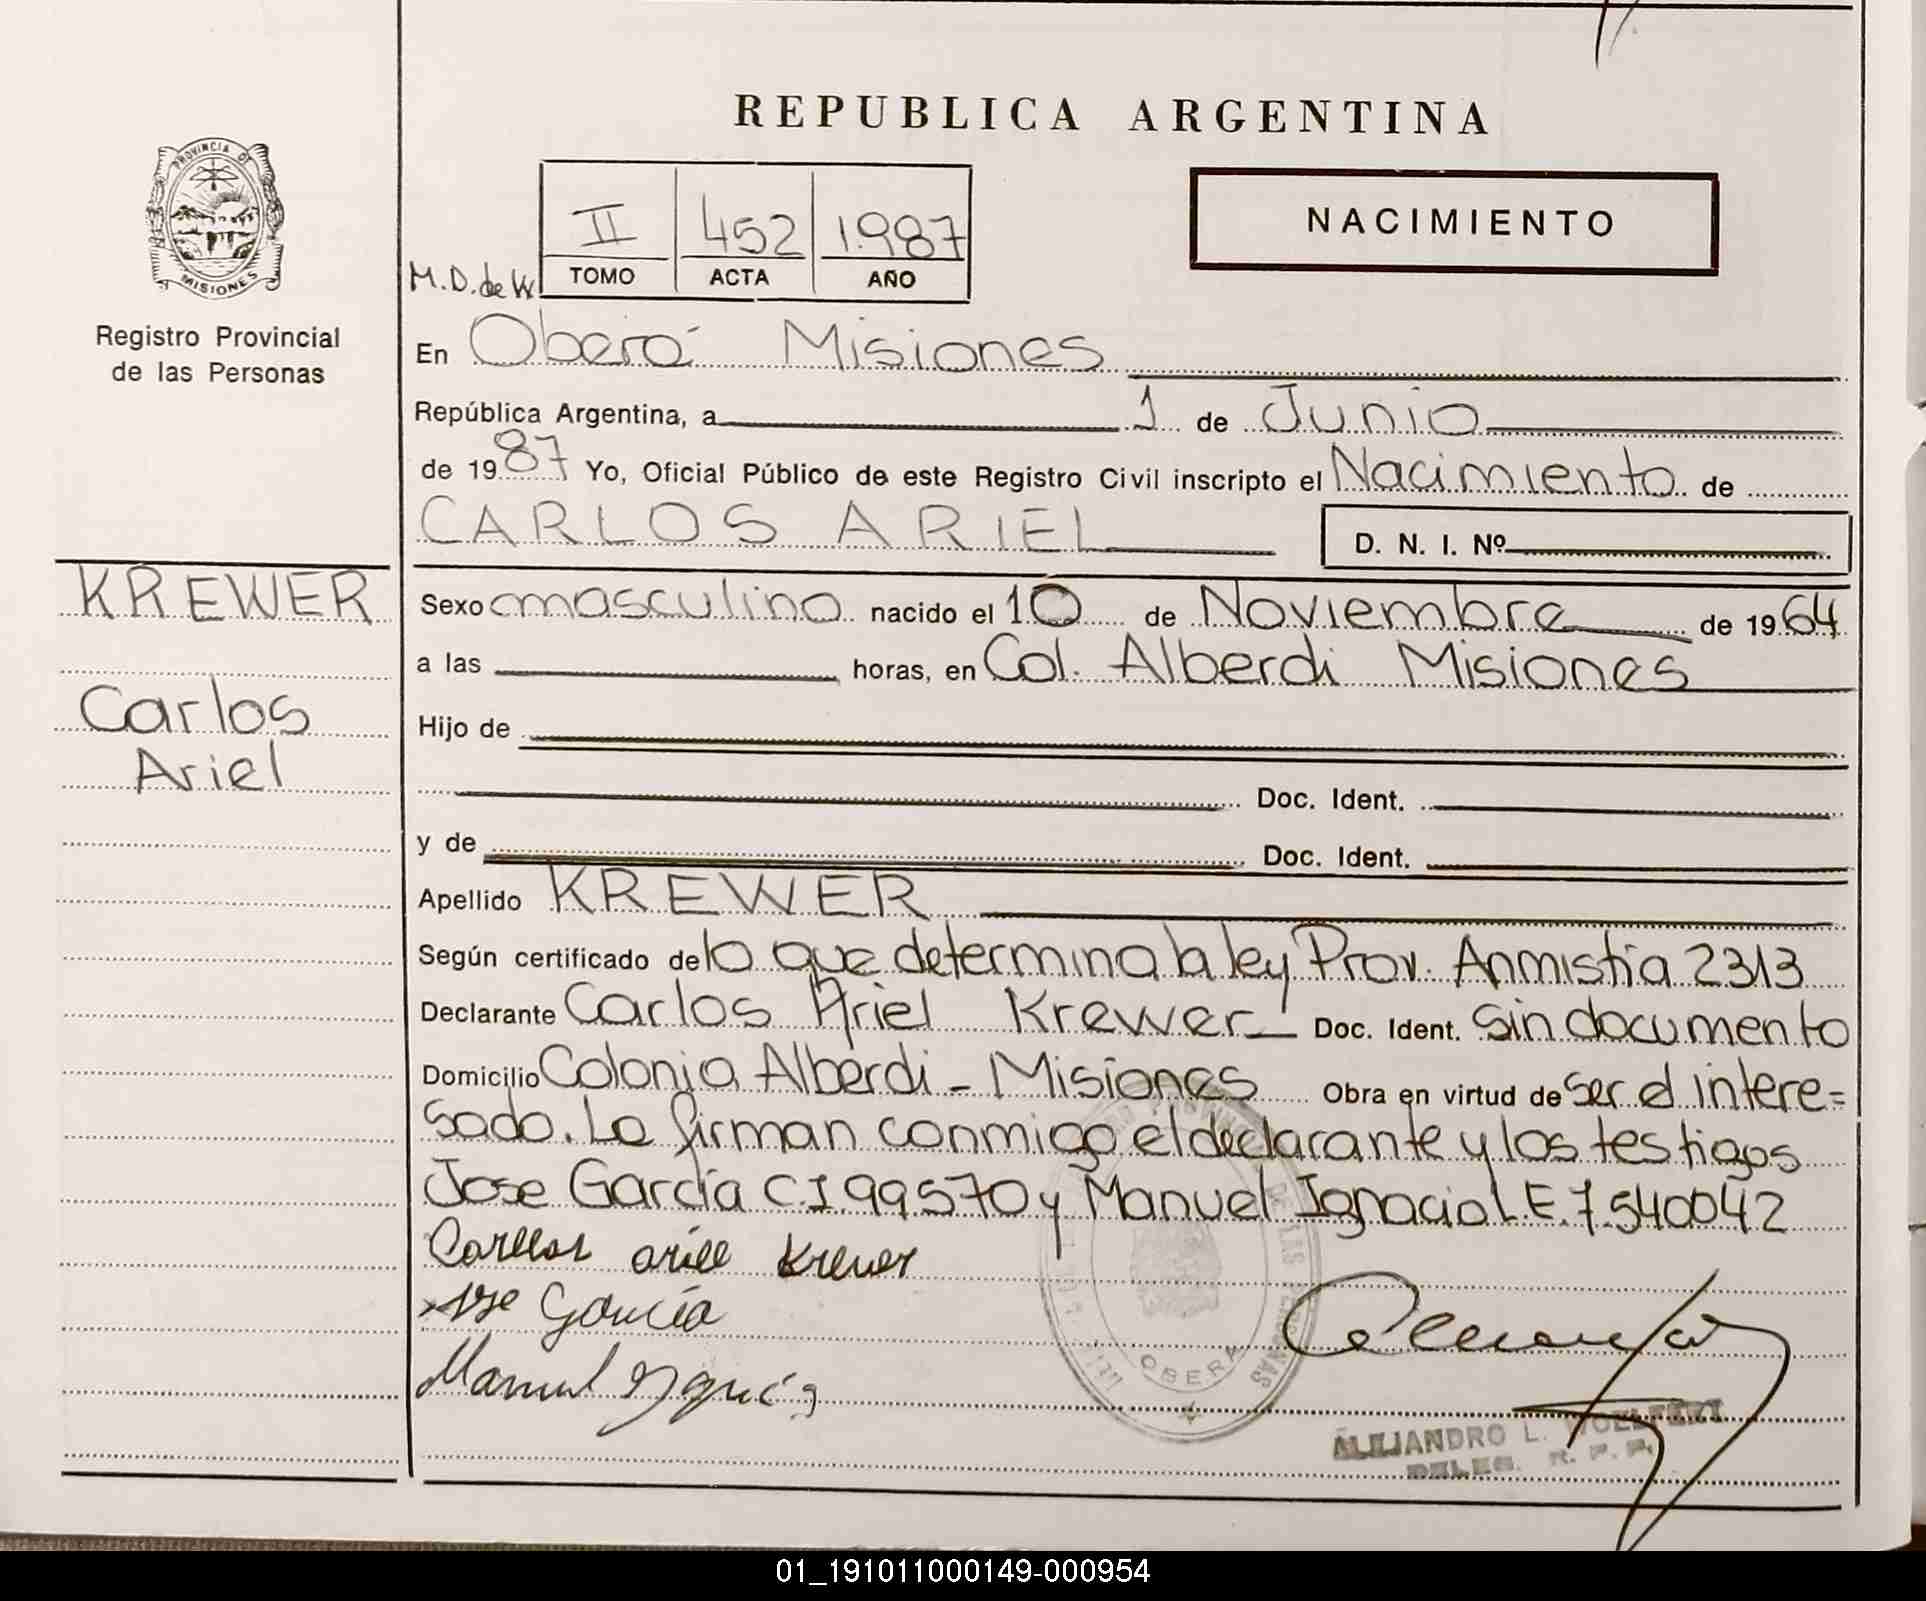 REPUBLICA ARGENTINA
PROVINCIA DE
MISIONES
Registro Provincial
de las Personas
II 452 1.987
TOMO ACTA AÑO
NACIMIENTO
M.D. de W
En Oberá Misiones
República Argentina, a 1 de Junio
de 1987 Yo, Oficial Público de este Registro Civil inscripto el Nacimiento de
CARLOS ARIEL D. N. I. Nº
KREWER
Carlos
Ariel
Sexo masculino nacido el 10 de Noviembre de 1964
a las horas, en Col. Alberdi Misiones
Hijo de
Doc. Ident.
y de Doc. Ident.
Apellido KREWER
Según certificado de lo que determina la ley Prov. Anmistía 2313
Declarante Carlos Ariel Krewer Doc. Ident. Sin documento
Domicilio Colonia Alberdi - Misiones Obra en virtud de ser el intere=
sado. Lo firman conmigo el declarante y los testigos
Jose García C.I 99570 y Manuel Ignacio L.E. 7.540042
Carllos ariel Krewer
Jose García
Manuel
OBERA
ALEJANDRO L. WOELFERT
DELEG. R. P. P.
01_191011000149-000954